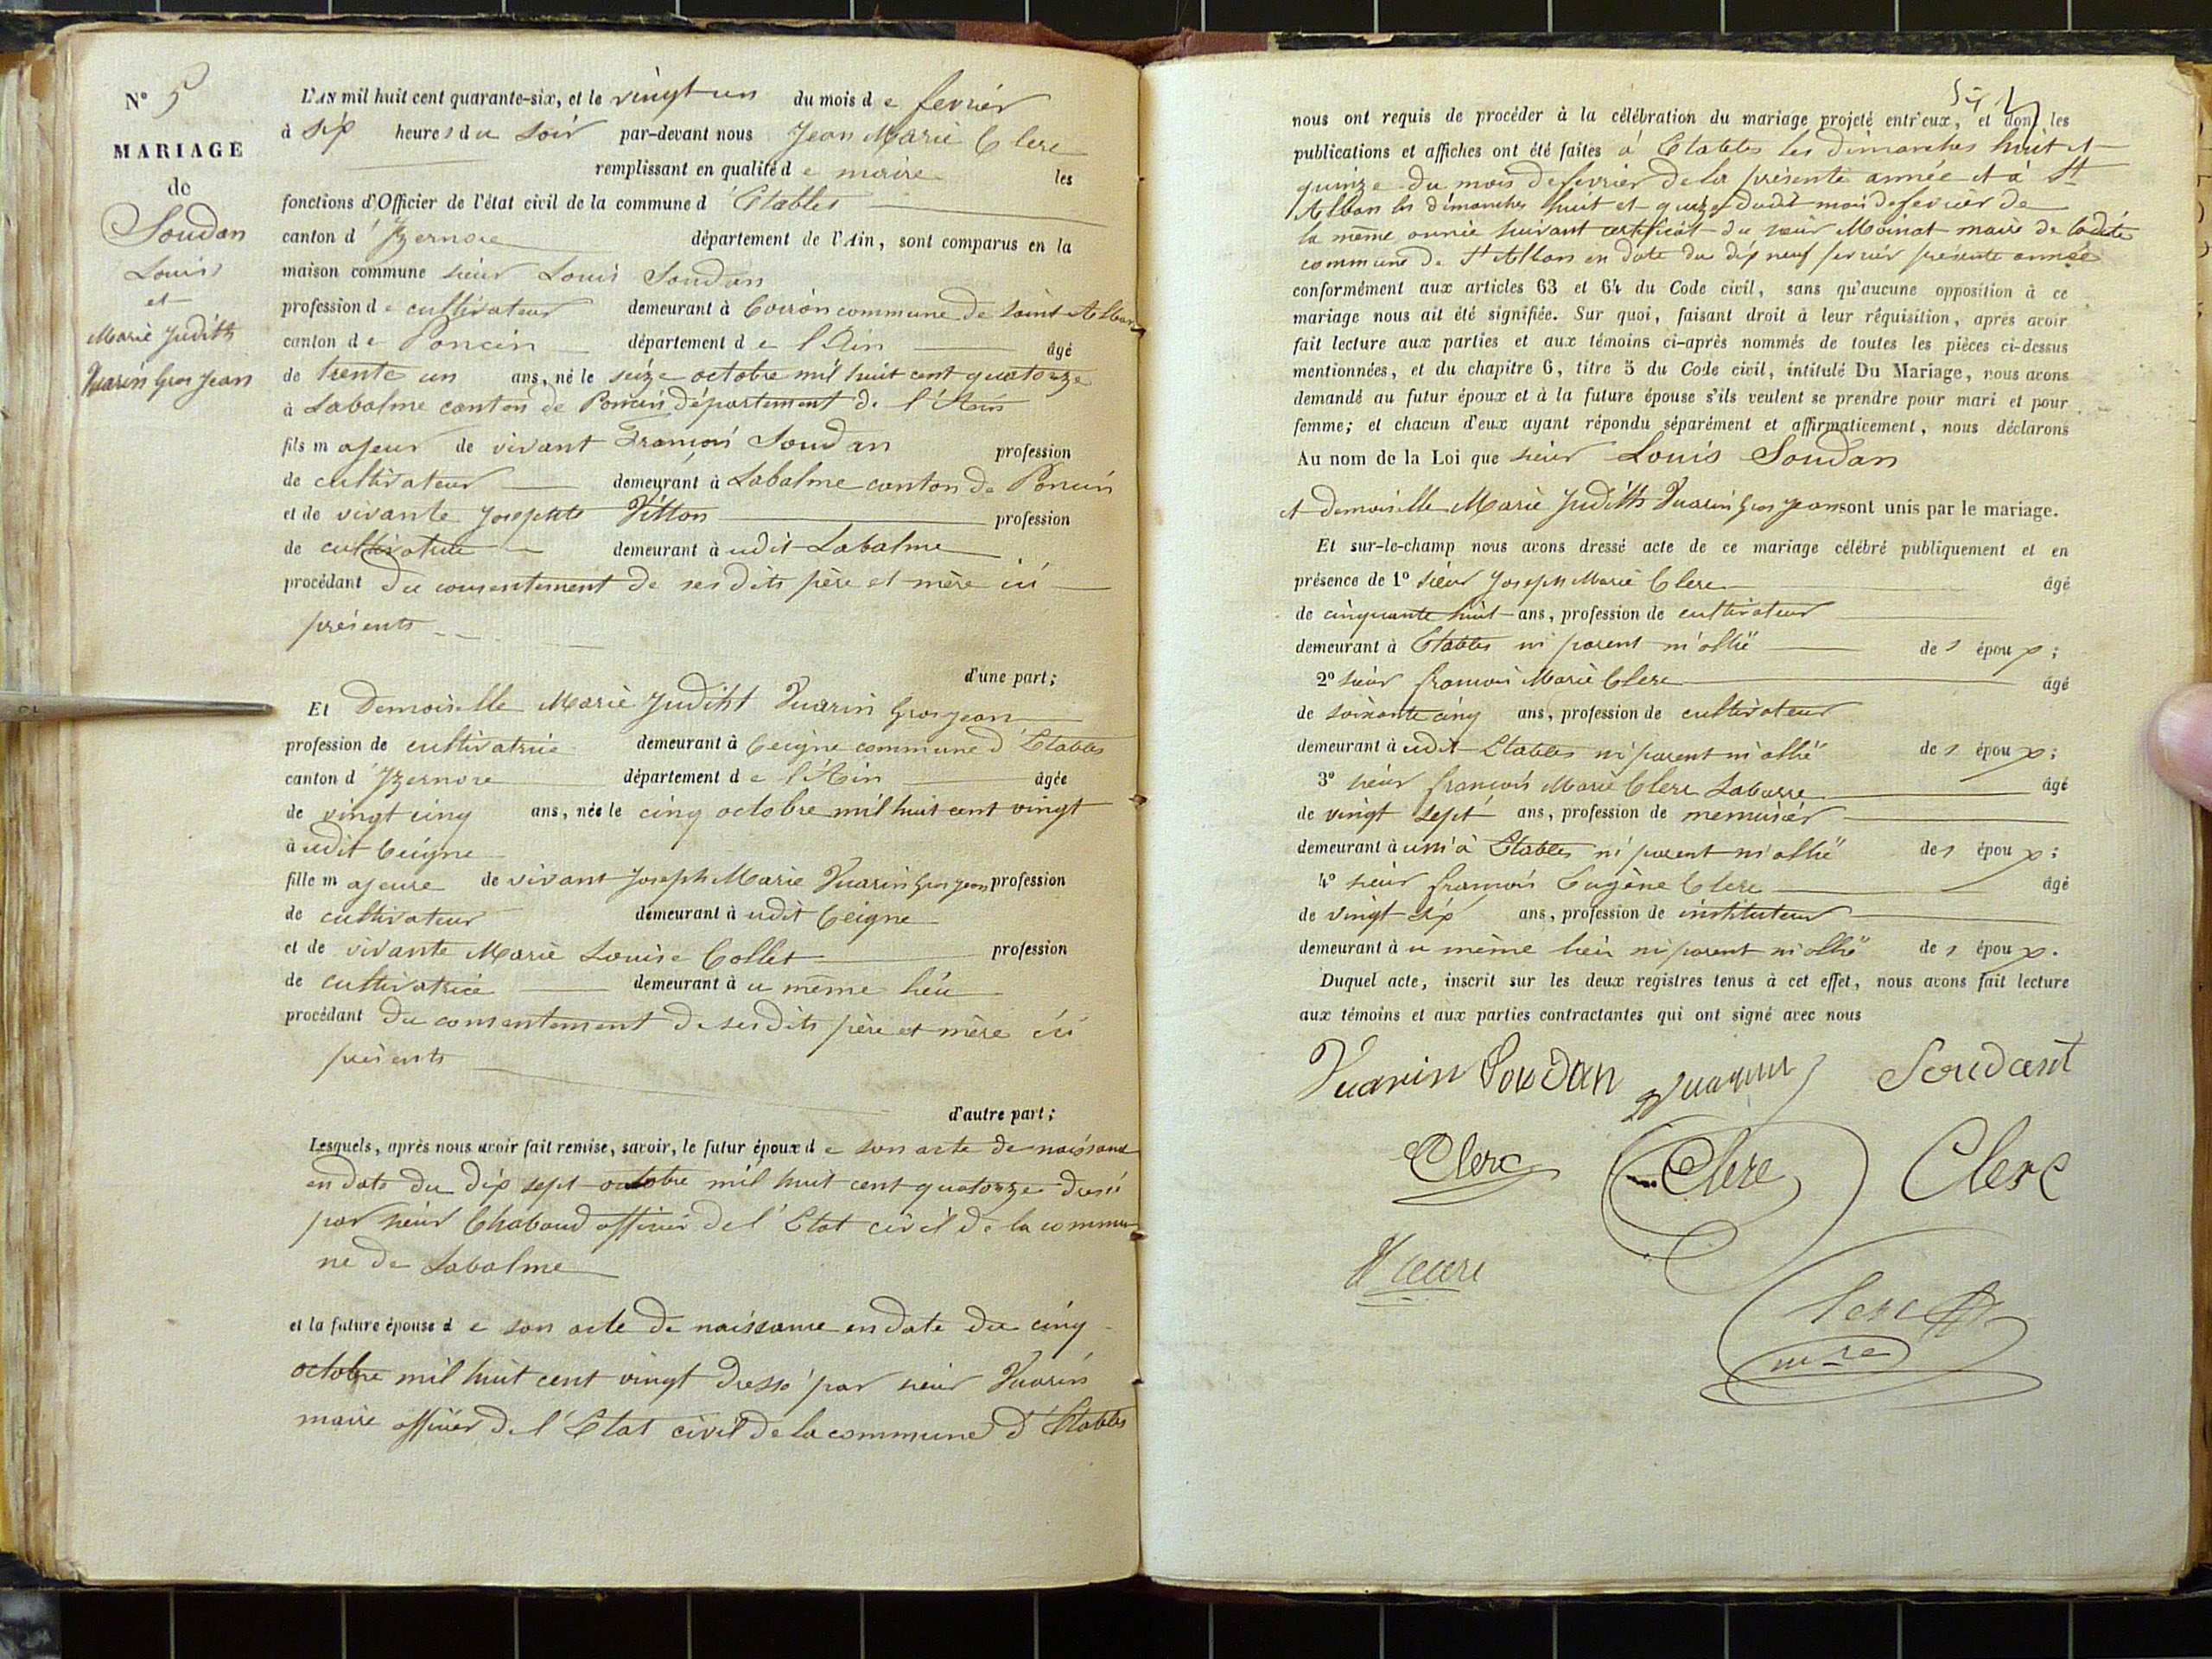 N° 5
MARIAGE
de
Soudan
Louis
et
Marie Judith
Vuarin Gros Jean
L'AN mil huit cent quarante-six, et le vingt un du mois de fevrier
à six heures du soir par-devant nous Jean Marie Clerc
remplissant en qualité de maire les
fonctions d'Officier de l'état civil de la commune d'Etables
canton d'Izernore département de l'Ain, sont comparus en la
maison commune sieur Louis Soudan
profession de cultivateur demeurant à commune de saint Alban
canton de Poncin département de l'Ain âgé
de trente un ans, né le seize octobre mil huit cent quatorze
à Labalme canton de Poncin département de l'Ain
fils majeur de vivant François Soudan profession
de cultivateur demeurant à Labalme canton de Poncin
et de vivante Josephte Vitton profession
de cultivatrice demeurant audit Labalme
procédant du consentement de ses dits père et mère ici
présents
d'une part;
Et Demoiselle Marie Judiht Vuarin Gros jean
profession de cultivatrice demeurant à Ceigne commune d'Etables
canton d'Izernore département de l'Ain âgée
de vingt cinq ans, née le cinq octobre mil huit cent vingt
audit Ceigne
fille majeure de vivant Joseph Marie Vuarin Gros jean profession
de cultivateur demeurant audit Ceigne
et de vivante Marie Louise Collet profession
de cultivatrice demeurant au même lieu
procédant du consentement de ses dits père et mère ici
présents
d'autre part;
Lesquels, après nous avoir fait remise, savoir, le futur époux de son acte de naissance
en date du dix sept octobre mil huit cent quatorze dressé
par sieur Chaboud officier de l'Etat civil de la commu
ne de Labalme
et la future épouse de son acte de naissance en date du cinq
octobre mil huit cent vingt dressé par sieur Vuarin
maire officier de l'Etat civil de la commune d'Etables
nous ont requis de procéder à la célébration du mariage projeté entr'eux, et dont les
publications et affiches ont été faites à Etables les dimanches huit et
quinze du mois de fevrier de la présente année et à St
Alban les dimanches huit et quinze dudit mois de fevrier de
la même année suivant certificat du sieur Moinat maire de ladite
commune de St Alban en date du dix neuf fevrier présente année
conformément aux articles 63 et 64 du Code civil, sans qu'aucune opposition à ce
mariage nous ait été signifiée. Sur quoi, faisant droit à leur réquisition, après avoir
fait lecture aux parties et aux témoins ci-après nommés de toutes les pièces ci-dessus
mentionnées, et du chapitre 6, titre 5 du Code civil, intitulé Du Mariage, nous avons
demandé au futur époux et à la future épouse s'ils veulent se prendre pour mari et pour
femme; et chacun d'eux ayant répondu séparément et affirmativement, nous déclarons
Au nom de la Loi que sieur Louis Soudan
et demoiselle Marie Judith Vuarin Gros jean sont unis par le mariage.
Et sur-le-champ nous avons dressé acte de ce mariage célébré publiquement et en
présence de 1° sieur Joseph Marie Clerc âgé
de cinquante huit ans, profession de cultivateur
demeurant à Etables ni parent ni allié des époux;
2° sieur françois Marie Clerc âgé
de soixante cinq ans, profession de cultivateur
demeurant audit Etables ni parent ni allié des époux;
3° sieur françois Marie Clerc Labarre âgé
de vingt sept ans, profession de menuisier
demeurant aussi à Etables ni parent ni allié des époux;
4° sieur françois Eugène Clerc âgé
de vingt six ans, profession de instituteur
demeurant au même lieu ni parent ni allié des époux.
Duquel acte, inscrit sur les deux registres tenus à cet effet, nous avons fait lecture
aux témoins et aux parties contractantes qui ont signé avec nous
Vuarin Soudan Soudant
Clerc Clerc Clerc
Clerc